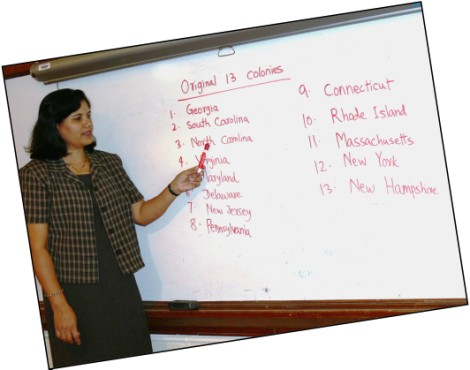 Original 13 colonies
1. Georgia
2. South Carolina
3. North Carolina
4. Virginia
Maryland
6. Delaware
7. New Jersey
8. Pennsylvania
9. Connecticut
10. Rhode Island
11. Massachusetts
12. New York
13. New Hampshire